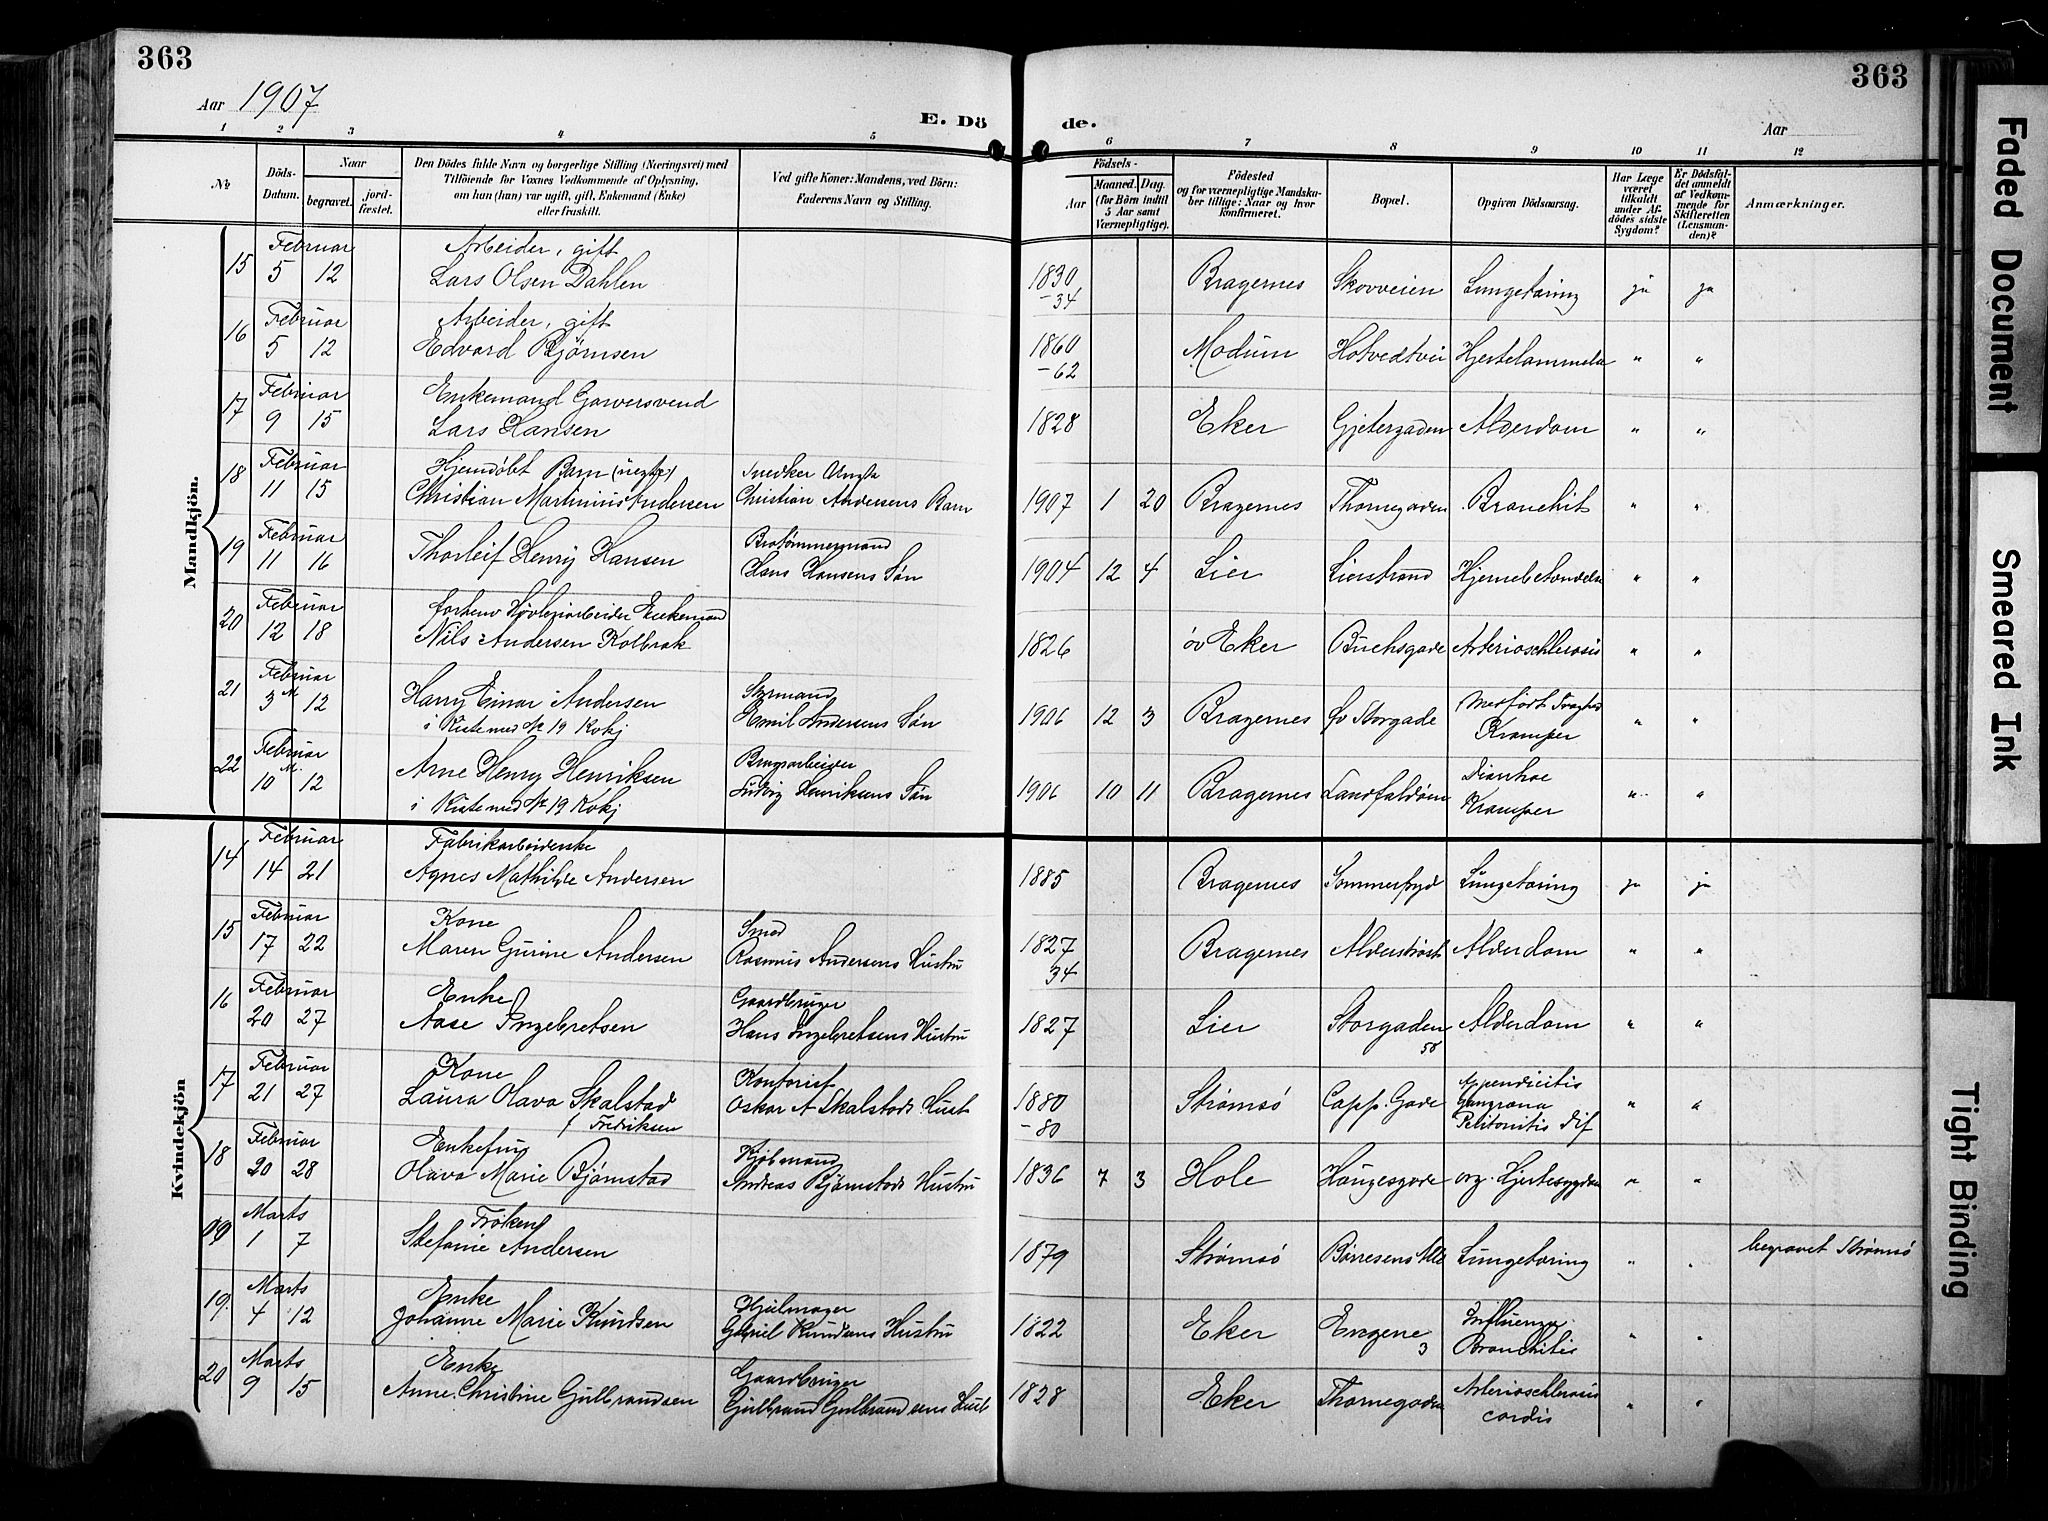 363
363
Aar 1907
E. Dö de.
Aar
1 2 3 4 5 6 7 8 9 10 11 12
No
Döds-Datum.
Naar
begravet.
jord-fæstet.
Den Dödes fulde Navn og borgerlige Stilling (Næringsvei) med
Tilföiende for Voxnes Vedkommende af Oplysning,
om hun (han) var ugift, gift, Enkemand (Enke)
eller fraskilt.
Ved gifte Koner: Mandens, ved Börn:
Faderens Navn og Stilling.
Födsels-
Aar
Maaned. Dag.
(for Börn indtil
5 Aar samt
Værnepligtige).
Födested
og for værnepligtige Mandska-
ber tillige: Naar og hvor
konfirmeret.
Bopæl.
Opgiven Dödsaarsag.
Har Læge
været
tilkaldt
under Af-
dödes sidste
Sygdom?
Er Dödsfal-
det anmeldt
af Vedkom-
mende for
Skifteretten
(Lensman-
den)?
Anmærkninger.
Mandkjön.
15 Februar 5 12 Arbeider, gift
Lars Olsen Dahlen 1830 -34 Bragernes Skovveien Lungetæring ja ja
16 Februar 5 12 Arbeider, gift
Edvard Bjørnsen 1860 -62 Modum Hotvedtvei Hjertelammelse " "
17 Februar 9 15 Enkemand Garversvend
Lars Hansen 1828 Eker Gjetergaden Alderdom " "
18 Februar 11 15 Hjemdøbt Barn (uegte) Snedker Ungk
Christian Martinius Andersen Christian Andersens Barn 1907 1 20 Bragernes Thornegaden Bronchit " "
19 Februar 11 16 Brotømmermand
Thorleif Henry Hansen Hans Hansens Søn 1904 12 4 Lier Lierstrand Hjernebetændelse " "
20 Februar 12 18 forhenv Høvleriarbeider Enkemand
Nils Andersen Kolbræk 1826 øv Eker Buchsgade Arterioschlerosis " "
21 Februar 3 M. 12 Styrmand
Harry Einar Andersen Hemil Andersens Søn 1906 12 3 Bragernes Øv Storgade Medfødt Svaghed
i Kiste med № 19 Kvkj Kramper " "
22 Februar 10 M. 12 Brugsarbeider
Arne Henry Henriksen Ludvig Henriksens Søn 1906 10 11 Bragernes Landfaldøen Diarrhoe
i Kiste med № 19 Kvkj Kramper " "
Kvindekjön
14 Februar 14 21 Fabrikarbeiderske
Agnes Mathilde Andersen 1885 Bragernes Sommerfryd Lungetæring ja ja
15 Februar 17 22 Kone Smed
Maren Gurine Andersen Rasmus Andersens Hustru 1827 34 Bragernes Alderstrøst Alderdom " "
16 Februar 20 27 Enke Gaardbruger
Aase Ingebretsen Hans Ingebretsens Hustru 1827 Lier Storgaden 58 Alderdom " "
17 Februar 21 27 Kone Kontorist
Laura Olava Skalstad Oskar A Skalstads Hust 1880 -80 Strømsø Capp. Gade Appendicitis
f Fredriksen Gangræna
Peritonitis dif " "
18 Februar 20 28 Enkefru Kjøbmand
Olava Marie Bjørnstad Andreas Bjørnstads Hustru 1836 7 3 Hole Haugesgade org. Hjertesygdom " "
19 Marts 1 7 Frøken
Stefanie Andersen 1879 Strømsø Børresens Alle Lungetæring " " begravet Strømsø
19. Marts 4 12 Enke Hjulmager
Johanne Marie Knudsen Gabriel Knudsens Hustru 1822 Eker Engene 3 Influenza
Bronchitis " "
20 Marts 9 15 Enke Gaardbruger
Anne Christine Gulbrandsen Gulbrand Gulbrandsens Hust 1828 Eker Thornegaden Arterioschlerosis
cordis " "
Faded Document
Smeared Ink
Tight Binding